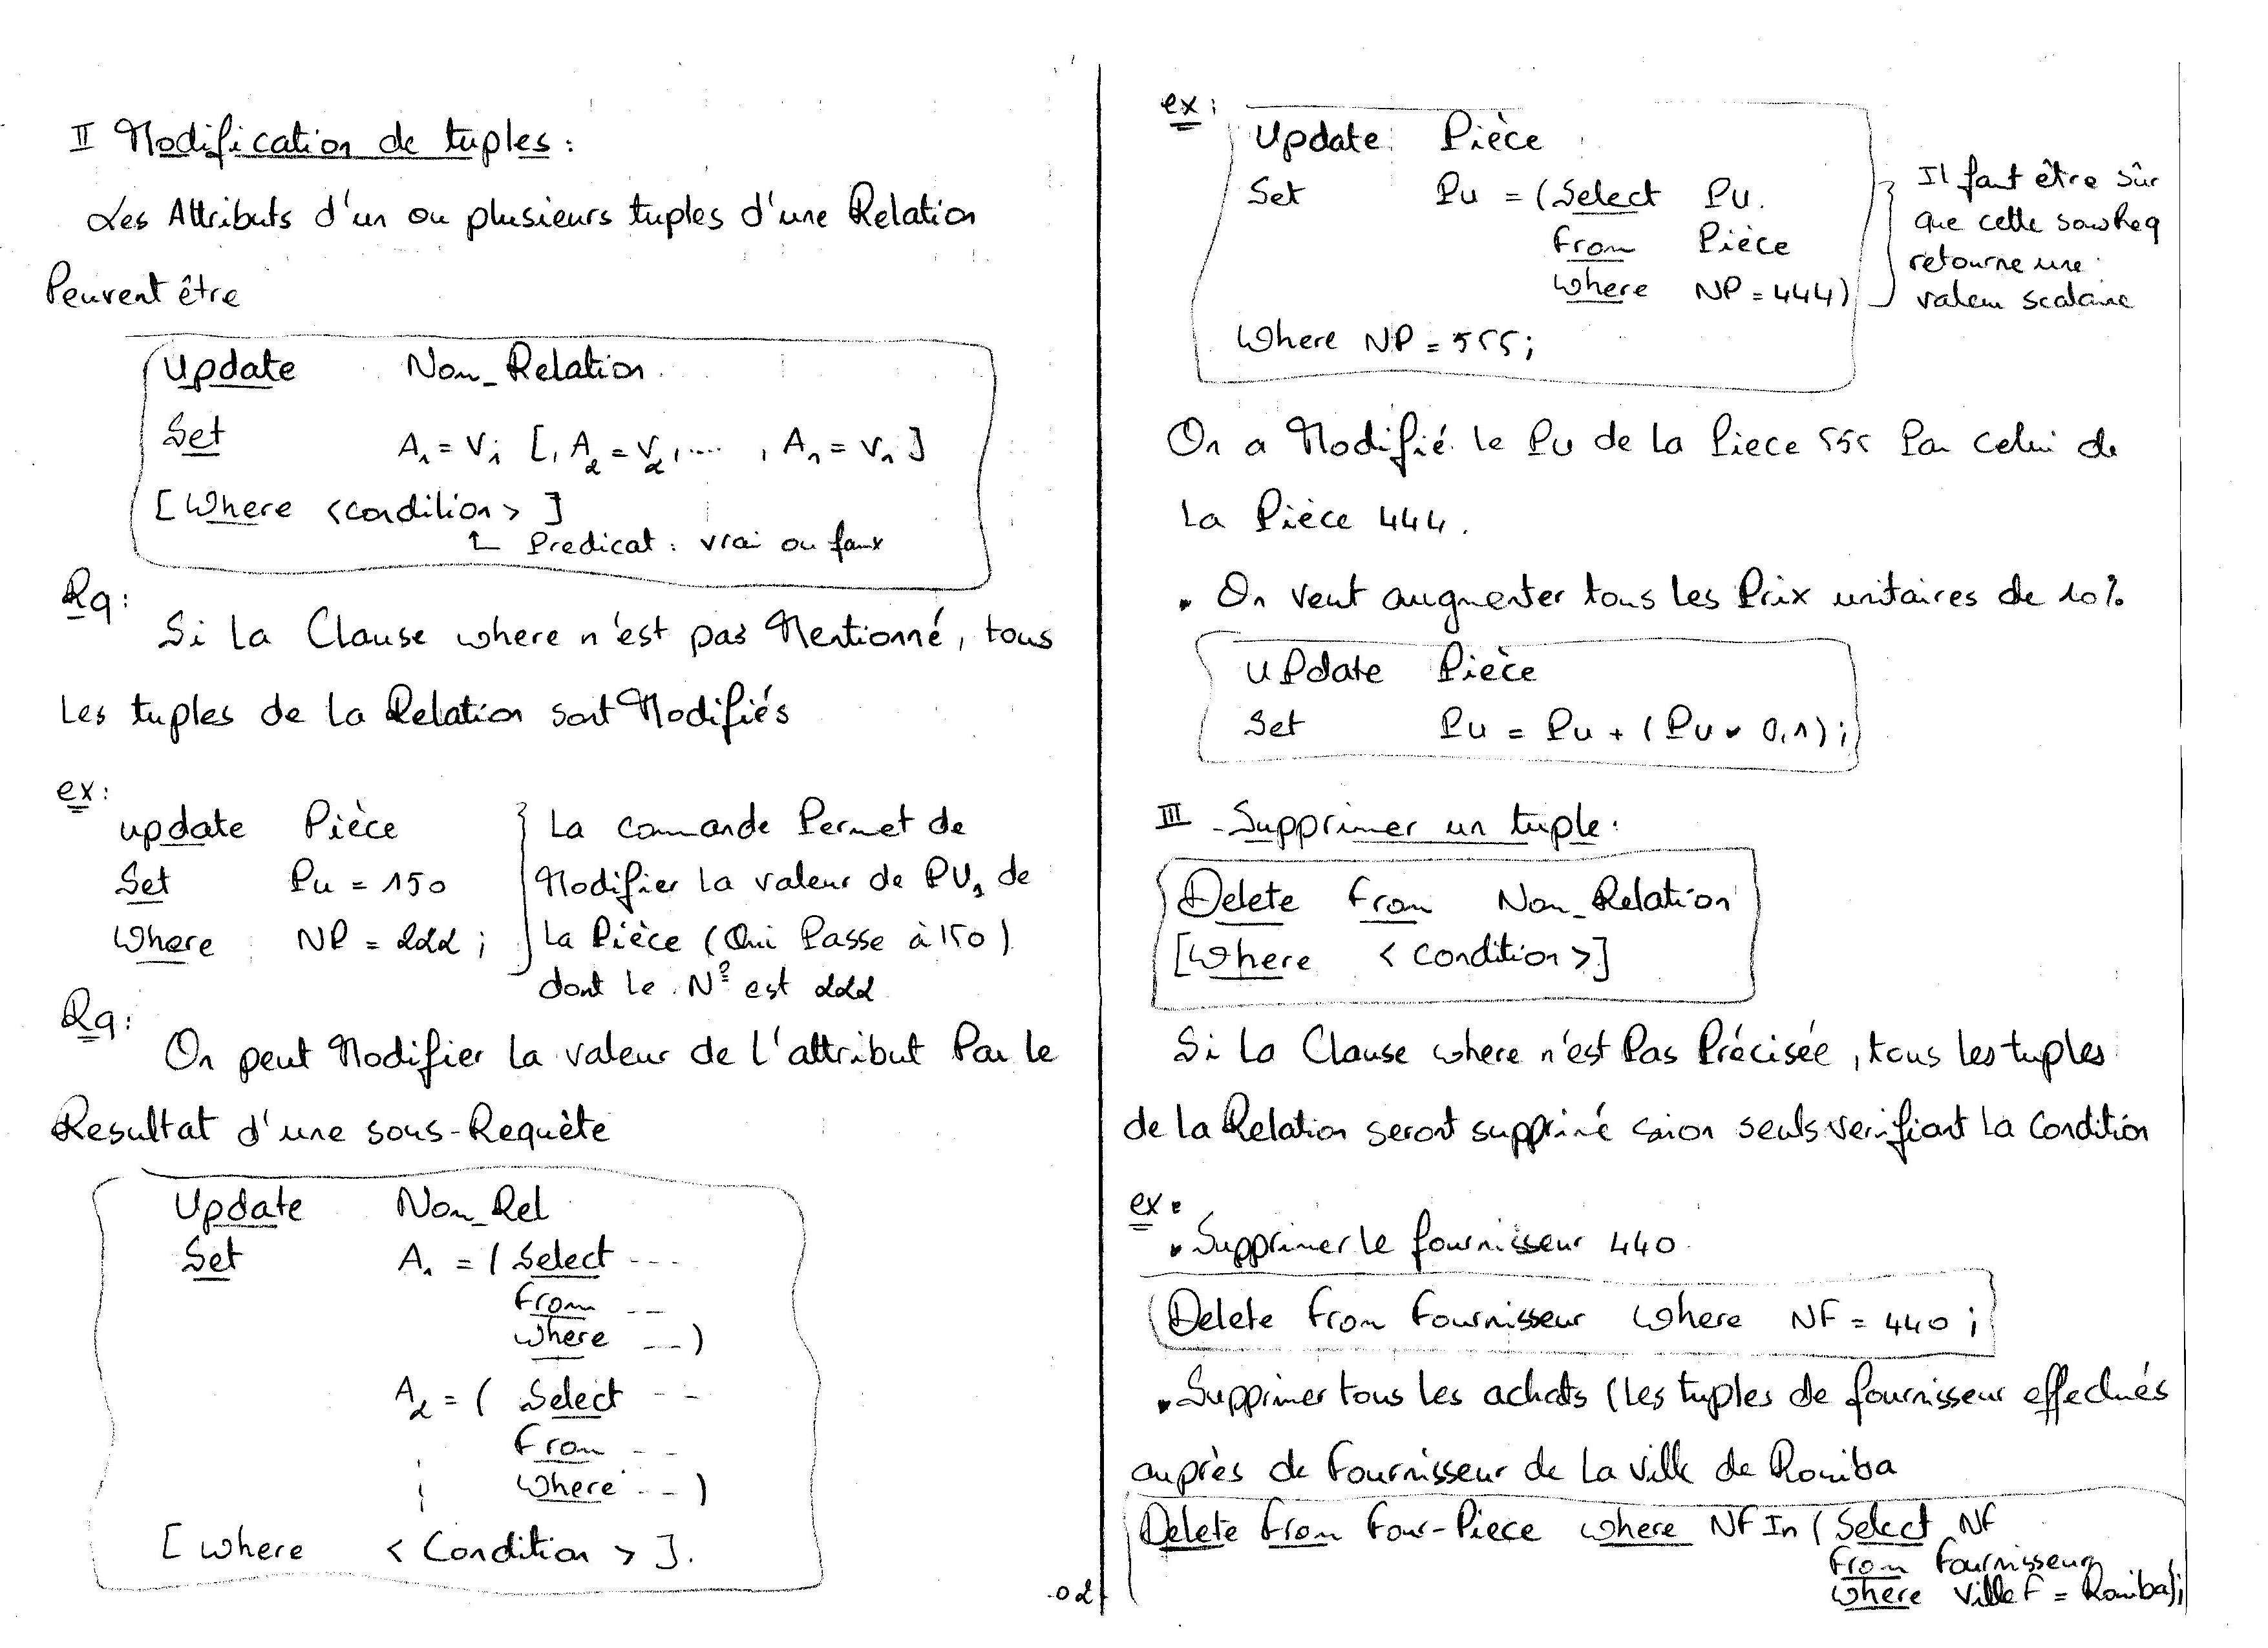 II Modification de tuples :
Les Attributs d'un ou plusieurs tuples d'une Relation
Peuvent être
Update Nom_Relation
Set A1 = V1 [, A2 = V2, .... , An = Vn ]
[ Where <condition> ]
Predicat : vrai ou faux
Rq :
Si la Clause where n'est pas Mentionné, tous
Les tuples de la Relation sont Modifiés
ex :
update Pièce
Set Pu = 150
Where NP = 222 ;
La commande Permet de
Modifier la valeur de PU, de
la Pièce (Qui Passe à 150)
dont le N° est 222
Rq :
On peut Modifier la valeur de l'attribut Par le
Resultat d'une sous-Requête
Update Nom_Rel
Set A1 = ( Select ---
From --
Where --- )
A2 = ( Select --
From --
Where --- )
[ Where < Condition > ].
02
ex :
Update Pièce
Set Pu = (Select Pu
From Pièce
Where NP = 444)
Where NP = 555 ;
Il faut être sûr
que cette sousReq
retourne une
valeur scalaire
On a Modifié le Pu de la Piece 555 Par celui de
la Pièce 444.
• On veut augmenter tous les Prix unitaires de 10%
UPdate Pièce
Set Pu = Pu + ( Pu * 0,1) ;
III - Supprimer un tuple :
Delete From Nom_Relation
[Where < condition >]
Si la Clause where n'est Pas Précisée, tous les tuples
de la Relation seront supprimé sinon seuls verifiant la Condition
ex :
• Supprimer le fournisseur 440
Delete From Fournisseur Where NF = 440 ;
• Supprimer tous les achats (les tuples de fournisseur effectués
auprès de Fournisseur de la ville de Rouiba
Delete From Four-Piece where NF In ( Select NF
From Fournisseur
Where VilleF = Rouiba) ;